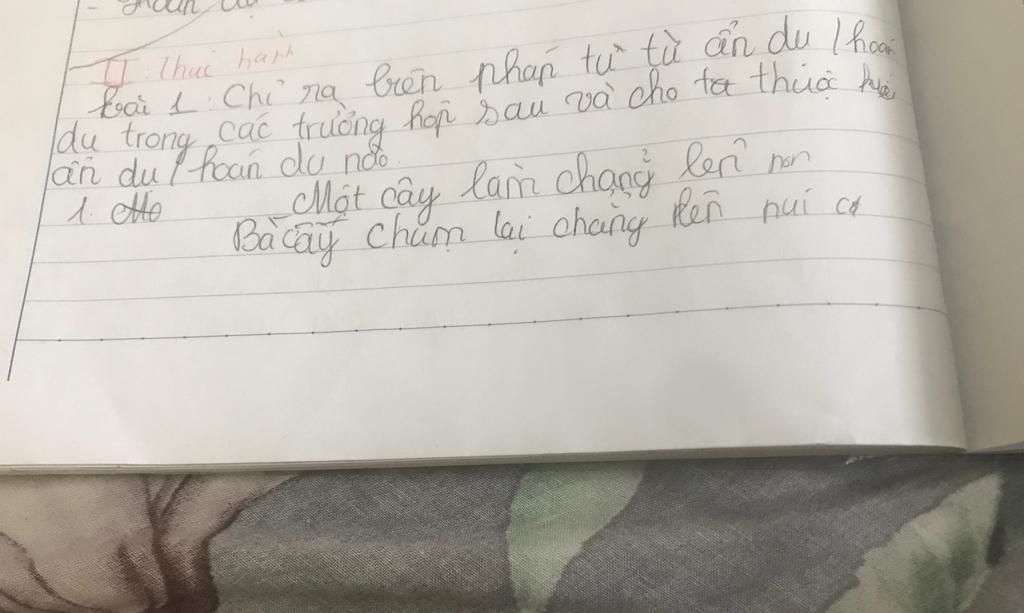 II: Thực hành
bài 1: Chỉ ra biện pháp tu từ ẩn dụ / hoán
dụ trong các trường hợp sau và cho ta thuộc kiểu
ẩn dụ / hoán dụ nào.
1. Một cây làm chẳng lên non
Bà cây chụm lại chẳng lên núi ca